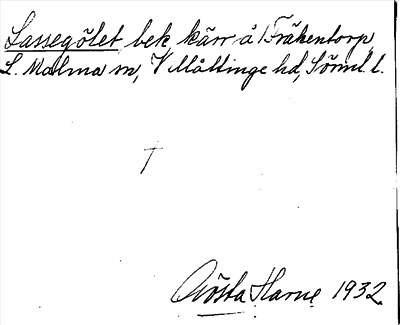 Lassegölet bek kärr å Fräkentorp,
L. Malma sn, Villåttinge hd, Söml. l.
Gösta Harne 1932